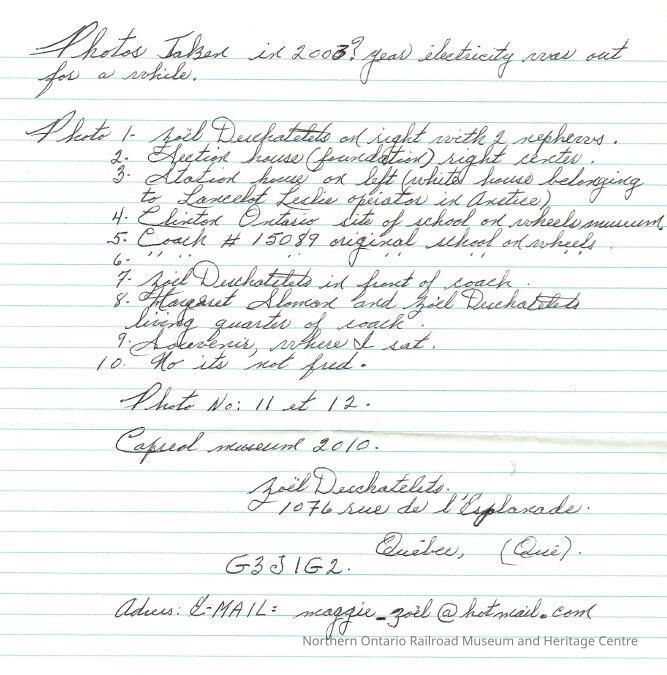 Photos Taken in 2003? year electricity was out
for a while.
Photo 1- Zoël Duchatelets on right with 2 nephews.
2. Section house (foundation) right center.
3. Station house on left (white house belonging
to Lancelot Leslie operator in Anstice)
4. Clinton Ontario site of school on wheels museum
5. Coach # 15089 original school on wheels.
6. " " " " " "
7. Zoël Duchatelets in front of coach.
8. Margaret Sloman and Zoël Duchatelets
living quarter of coach.
9. Souvenir, where I sat.
10. No its not fred.
Photo No: 11 et 12.
Capreol museum 2010.
Zoël Duchatelets.
1076 rue de l'Esplanade.
Québec, (Qué).
G3J 1G2.
Adress: E-MAIL: maggie_zoel@hotmail.com
Northern Ontario Railroad Museum and Heritage Centre